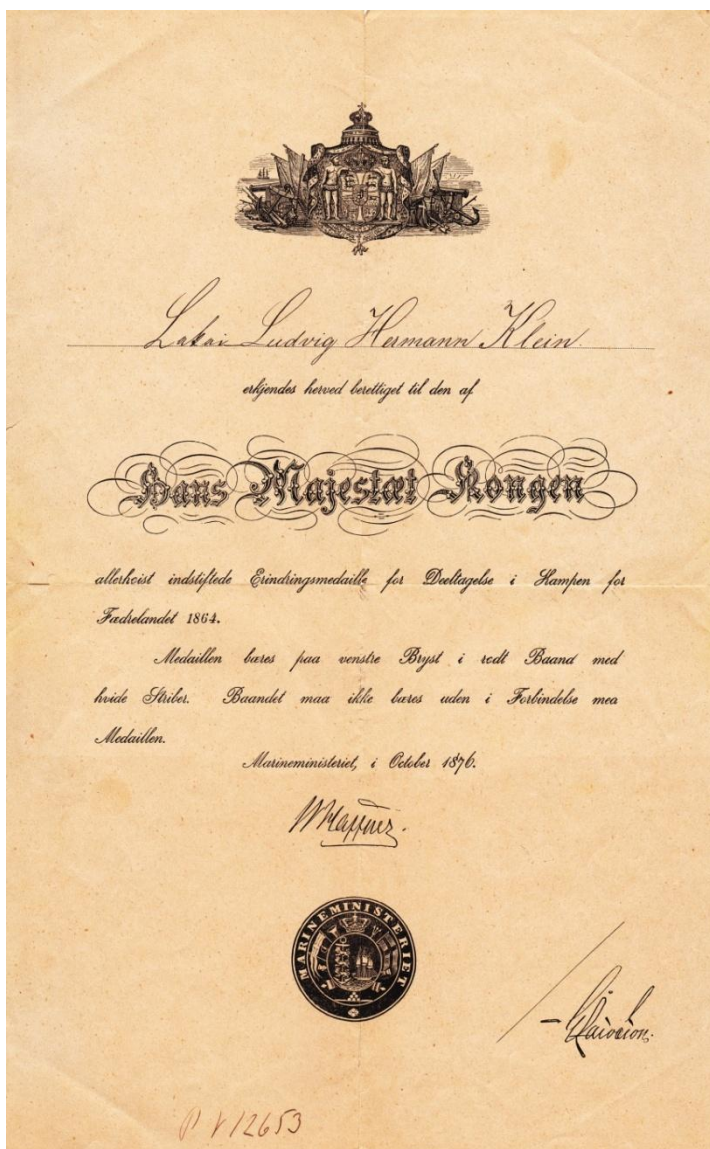 Lakai Ludvig Hermann Klein.
erkjendes herved berettiget til den af
Hans Majestæt Kongen
allerhøist indstiftede Erindringsmedaille for Deeltagelse i Kampen for
Fædrelandet 1864.
Medaillen bæres paa venstre Bryst i rødt Baand med
hvide Striber. Baandet maa ikke bæres uden i Forbindelse med
Medaillen.
Marineministeriet, i October 1876.
MARINEMINISTERIET
P V 12653